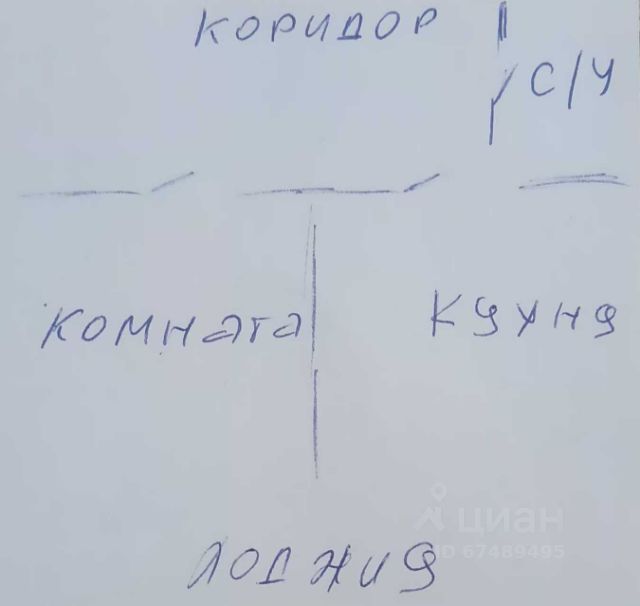 КОРИДОР
С/У
КОМНАТА
КУХНЯ
циан
ID 67489495
ЛОДЖИЯ